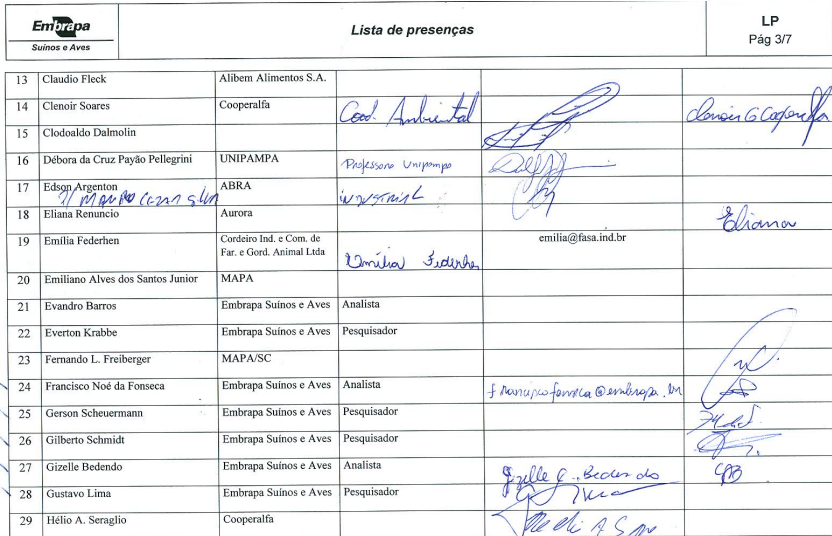 Embrapa
Suínos e Aves
Lista de presenças
LP
Pág 3/7
13 Claudio Fleck Alibem Alimentos S.A.
14 Clenoir Soares Cooperalfa Coord. Ambiental
15 Clodoaldo Dalmolin
16 Débora da Cruz Payão Pellegrini UNIPAMPA Professora Unipampa
17 Edson Argenton ABRA INDUSTRIAL
18 Eliana Renuncio Aurora Eliana
19 Emília Federhen Cordeiro Ind. e Com. de emilia@fasa.ind.br
Far. e Gord. Animal Ltda Emília Federhen
20 Emiliano Alves dos Santos Junior MAPA
21 Evandro Barros Embrapa Suínos e Aves Analista
22 Everton Krabbe Embrapa Suínos e Aves Pesquisador
23 Fernando L. Freiberger MAPA/SC
24 Francisco Noé da Fonseca Embrapa Suínos e Aves Analista francisco.fonseca@embrapa.br
25 Gerson Scheuermann Embrapa Suínos e Aves Pesquisador
26 Gilberto Schmidt Embrapa Suínos e Aves Pesquisador
27 Gizelle Bedendo Embrapa Suínos e Aves Analista Gizelle Bedendo
28 Gustavo Lima Embrapa Suínos e Aves Pesquisador
29 Hélio A. Seraglio Cooperalfa